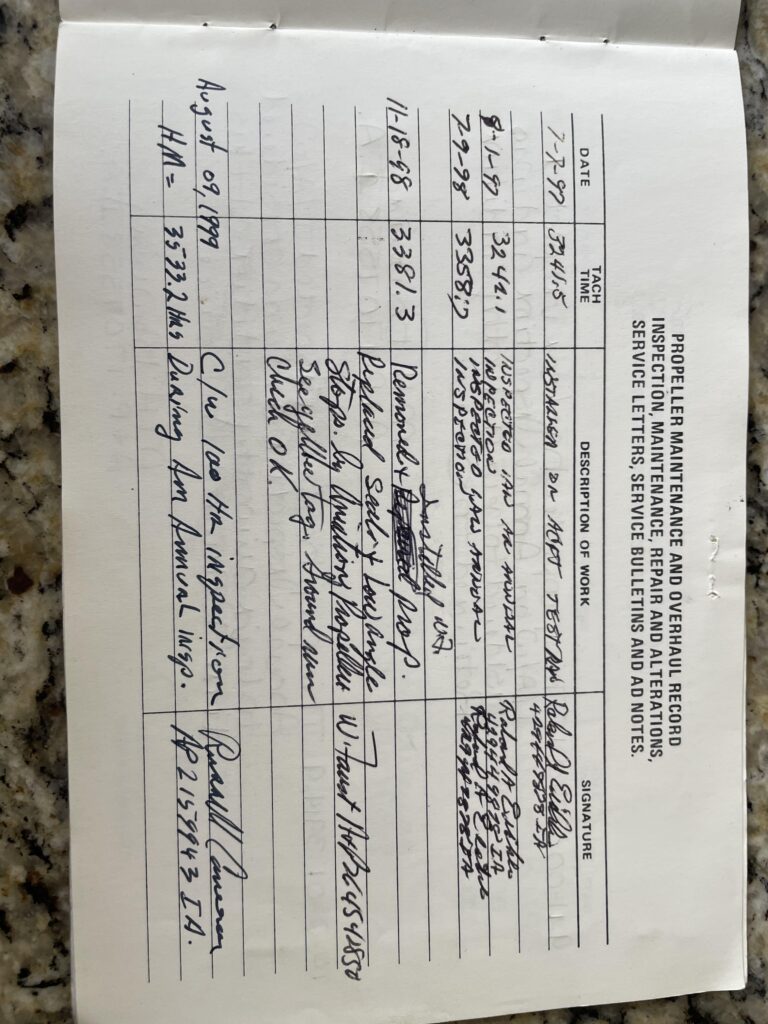 PROPELLER MAINTENANCE AND OVERHAUL RECORD
INSPECTION, MAINTENANCE, REPAIR AND ALTERATIONS,
SERVICE LETTERS, SERVICE BULLETINS AND AD NOTES.
DATE TACH TIME DESCRIPTION OF WORK SIGNATURE
7-7-97 3241.5 INSTALLED ON ACFT TEST RAN
IA
8-1-97 3242.1 INSPECTED IAW AN ANNUAL
INSPECTION IA
7-9-98 3358.7 INSPECTED IAW ANNUAL
INSPECTION IA
Installed
11-18-98 3381.3 Removed & prop.
Replaced Seals & Low Angle
Stops. by Propeller W. Faust
See yellow tag. Ground run
Check OK.
August 09, 1999 C/W 100 Hr inspection Russell Cameron
HM = 3533.2 Hrs During An Annual Insp. AP 2159943 IA.